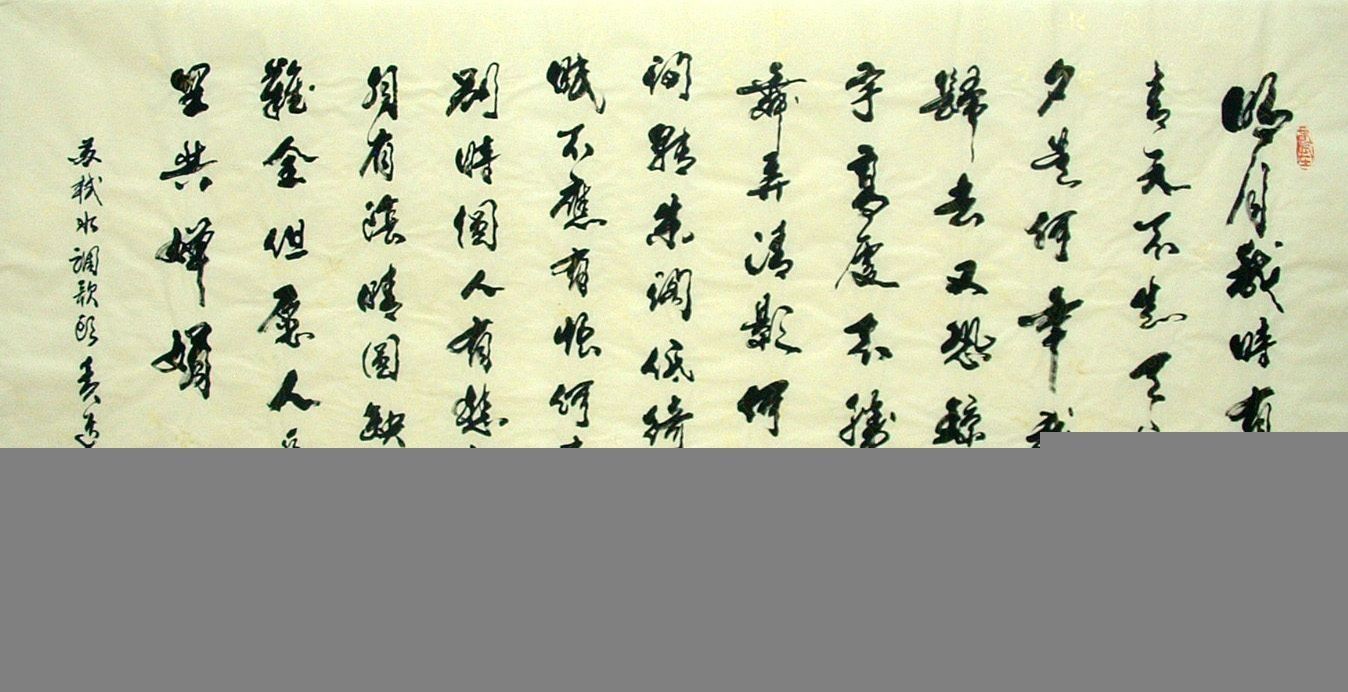 明月幾時有
青天不知天
夕是何年我
歸去又恐瓊
宇高處不勝
舞弄清影何
閣轉朱閣低綺
眠不應有恨何
別時圓人有悲
月有陰晴圓缺
難全但愿人
里共嬋娟
蘇軾水調歌頭